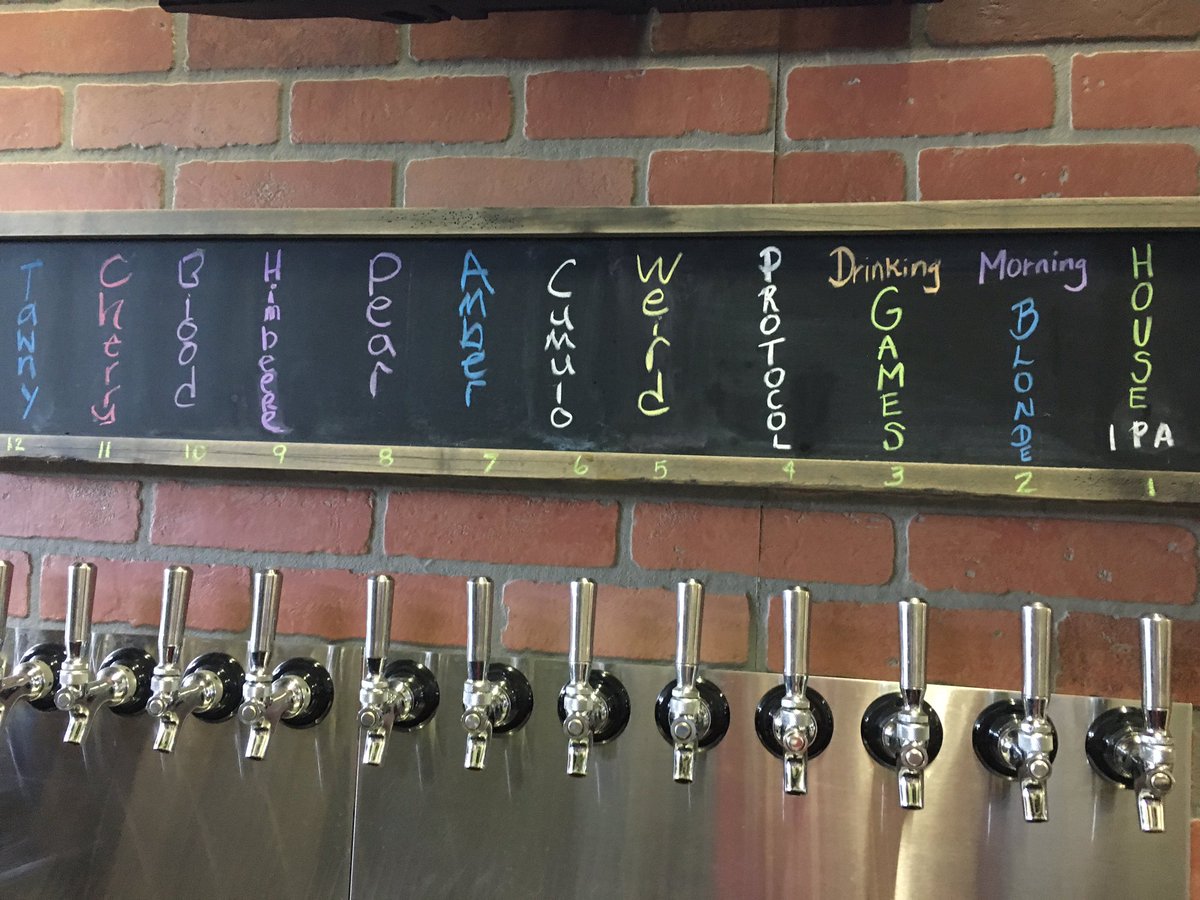 Tawny
Cherry
Blood
Himbeere
Pear
Amber
Cumulo
Weird
PROTOCOL
Drinking
GAMES
Morning
BLONDE
HOUSE
IPA
12 11 10 9 8 7 6 5 4 3 2 1